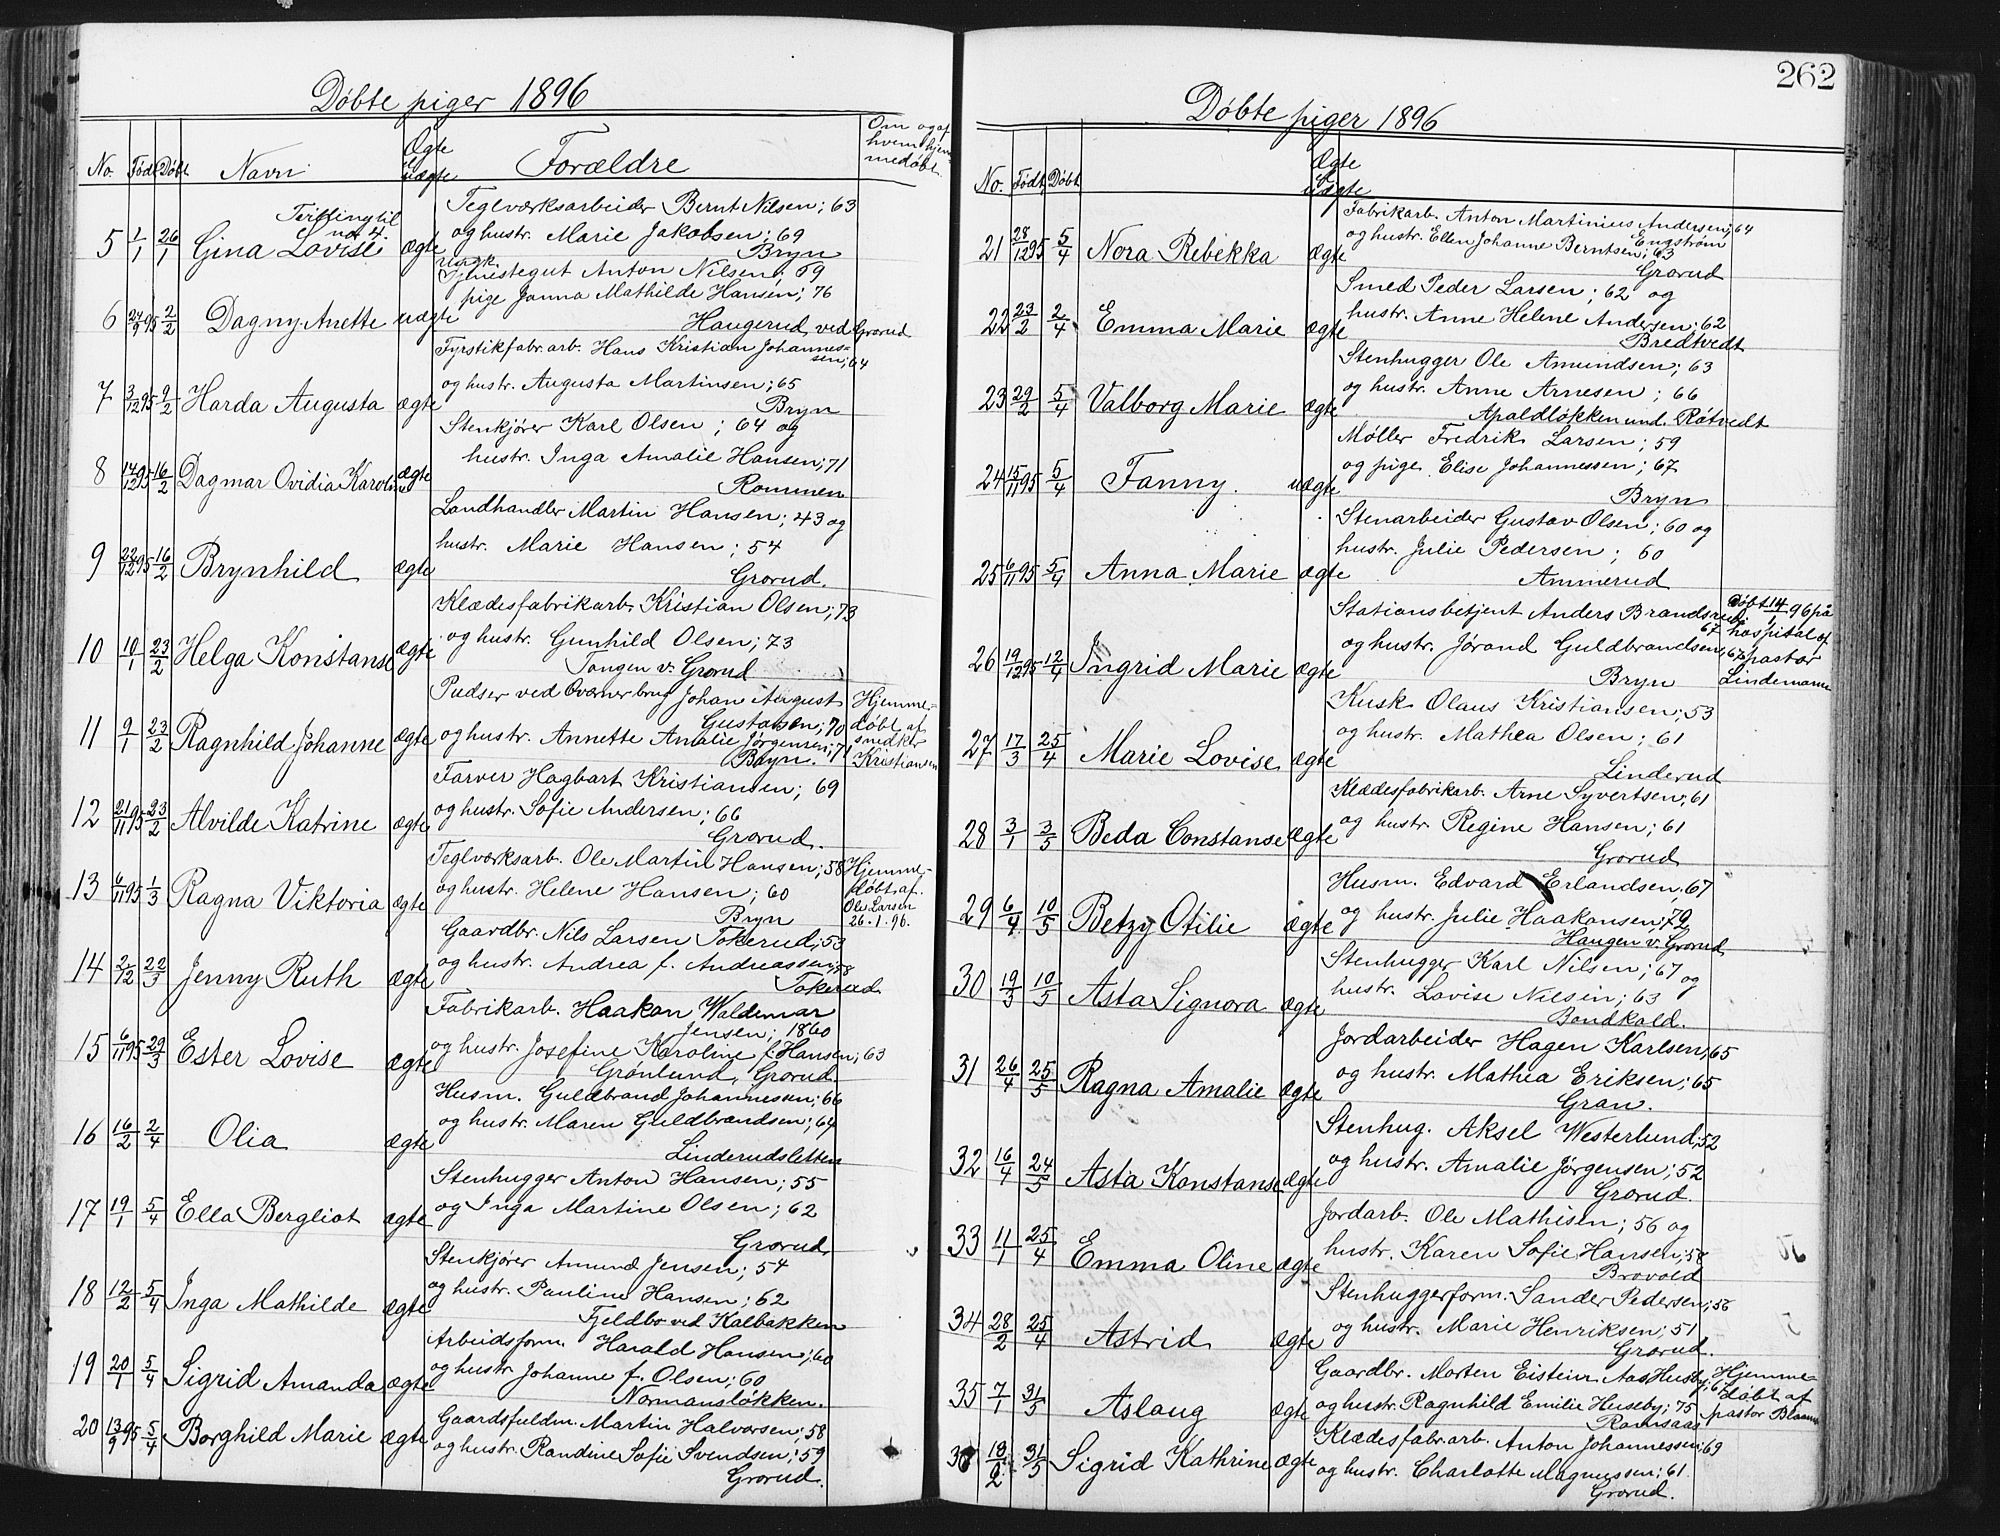 Døbte piger 1896
No. Født Døbt Navn Ægte el. uægte Forældre Om og af hvem hjemmedøbt.
5 1/1 26/1 Tvilling til no 4. Gina Lovise ægte Teglværksarbeider Bernt Nilsen; 63
og hustr. Marie Jakobsen; 69
Bryn
6 24/9 95 2/2 Dagny Anette uægte Ugift. Tjenestegut Anton Nilsen; 69
pige Janna Mathilde Hansen; 76
Haugerud ved Grorud
7 3/12 95 9/2 Harda Augusta ægte Fyrstikfabr. arb. Hans Kristian Johannes-
sen; 64
og hustr. Augusta Martinsen; 65
Bryn
8 14/12 95 16/2 Dagmar Ovidia Karoline ægte Stenkjører Karl Olsen; 64 og
hustr. Inga Amalie Hansen; 71
Rommen
9 22/12 95 16/2 Brynhild ægte Landhandler Martin Hansen; 43 og
hustr. Marie Hansen; 54
Grorud.
10 10/1 23/2 Helga Konstanse ægte Klædesfabrikarb. Kristian Olsen; 73
og hustr. Gunhild Olsen; 73
Tangen v. Grorud
11 9/1 23/2 Ragnhild Johanne ægte Pudser ved Oværner brug Johan August
Gustavsen; 70
og hustr. Annette Amalie Jørgensen; 71
Bryn.
Hjemme-
døbt af
snedker
Kristiansen
12 21/11 95 23/2 Alvilde Katrine ægte Farver Hagbart Kristiansen; 69
og hustr. Sofie Andersen; 66
Grorud.
13 6/11 95 1/3 Ragna Viktoria ægte Teglværksarb. Ole Martin Hansen; 58
og hustr. Helene Hansen; 60
Bryn
Hjemme-
døbt af.
Ole Larsen
26.1.96.
14 2/12 22/3 Jenny Ruth ægte Gaardbr. Nils Larsen Tokerud; 53
og hustr. Andrea f. Andreassen; 58
Tokerud
15 6/11 95 29/3 Ester Lovise ægte Fabrikarb. Haakon Waldemar
Jensen; 1860
og hustr. Josefine Karoline f. Hansen; 63
Grønlund, Grorud.
16 16/2 2/4 Olia ægte Husm. Guldbrand Johannessen; 66
og hustr. Maren Guldbrandsen; 64
Linderudsletten
17 19/1 5/4 Ella Bergliot ægte Stenhugger Anton Hansen; 55
og Inga Martine Olsen; 62
Grorud
18 12/2 5/4 Inga Mathilde ægte Stenkjører Amund Jensen; 54
og hustr. Pauline Hansen; 62
Fjeldbo ved Kalbakken
19 20/1 5/4 Sigrid Amanda ægte Arbeidsform. Harald Hansen; 60
og hustr. Johanne f. Olsen; 60
Normansløkken.
20 13/9 95 5/4 Borghild Marie ægte Gaardsfuldm. Martin Halvorsen; 58
og hustr. Randine Sofie Svendsen; 59
Grorud.
262
Døbte piger 1896
No. Født Døbt Ægte el. uægte
21 28/12 95 5/4 Nora Rebekka ægte Fabrikarb. Anton Martinius Andersen; 64
Engstrøm
og hustr. Ellen Johanne Berntsen; 63
Grorud
22 23/2 2/4 Emma Marie ægte Smed Peder Larsen; 62 og
hustr. Anne Helene Andersen; 62
Bredtvedt
23 29/2 5/4 Valborg Marie ægte Stenhugger Ole Amundsen; 63
og hustr. Anne Arnesen; 66
Apaldløkken und. Røtvedt
24 15/11 95 5/4 Fanny. uægte Møller Fredrik Larsen; 59
og pige Elise Johannessen; 67
Bryn
25 6/11 95 5/4 Anna Marie ægte Stenarbeider Gustav Olsen; 60 og
hustr. Julie Pedersen; 60
Ammerud
26 19/12 95 12/4 Ingrid Marie ægte Stationsbetjent Anders Brandsrud;
67
og hustr. Jørand Guldbrandsen; 67
Bryn
Døbt 14/1 96 på
hospital af
pastor
Lindemann
27 17/3 25/4 Marie Lovise ægte Kusk Olaus Kristiansen; 53
og hustr. Mathea Olsen; 61
Linderud
28 3/1 3/5 Beda Constanse ægte Klædesfabrikarb. Arne Syvertsen; 61
og hustr. Regine Hansen; 61
Grorud
29 6/4 10/5 Betzy Otilie ægte Husm. Edvard Erlandsen; 67
og hustr. Julie Haakonsen; 72
Haugen v. Grorud
30 19/3 10/5 Asta Signora ægte Stenhugger Karl Nilsen; 67 og
hustr. Lovise Nilsen; 63
Bondkald.
31 26/4 25/5 Ragna Amalie ægte Jordarbeider Hagen Karlsen; 65
og hustr. Mathea Eriksen; 65
Gran.
32 16/4 24/5 Asta Konstanse ægte Stenhug. Aksel Westerlund; 52
og hustr. Amalie Jørgensen; 52
Grorud.
33 11/1 25/4 Emma Oline ægte Jordarb. Ole Mathisen; 56 og
hustr. Karen Sofie Hansen; 58
Brovold
34 28/2 25/4 Astrid ægte Stenhuggerform. Sander Pedersen; 56
og hustr. Marie Henriksen; 51
Grorud.
35 7/1 31/5 Aslaug ægte Gaardbr. Morten Eistein Aas Husby; 67
og hustr. Ragnhild Emilie Huseby; 75
Ramsaas
Hjemme-
døbt af
pastor Blaauw
36 18/2 31/5 Sigrid Kathrine ægte Klædesfabr. arb. Anton Johannessen; 69
og hustr. Charlotte Magnussen; 61.
Grorud.